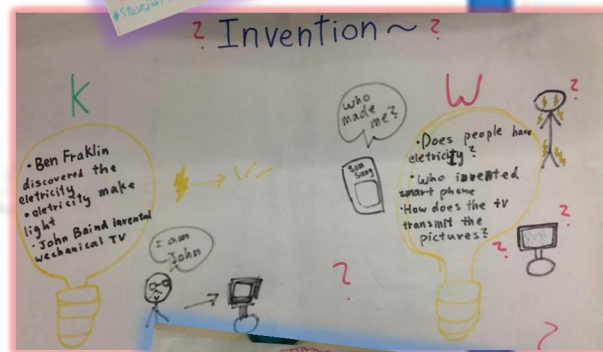 ? Invention ~ ?
K
• Ben Fraklin
discovered the
eletricity
• eletricity make
light
• John Baind invented
mechanical TV
I am
John
?
who
made
me?
Sam
Sung
W
?
• Does people have
eletricity?
• who invented
smart phone
• How does the tv
transmit the
pictures?
?
?
?